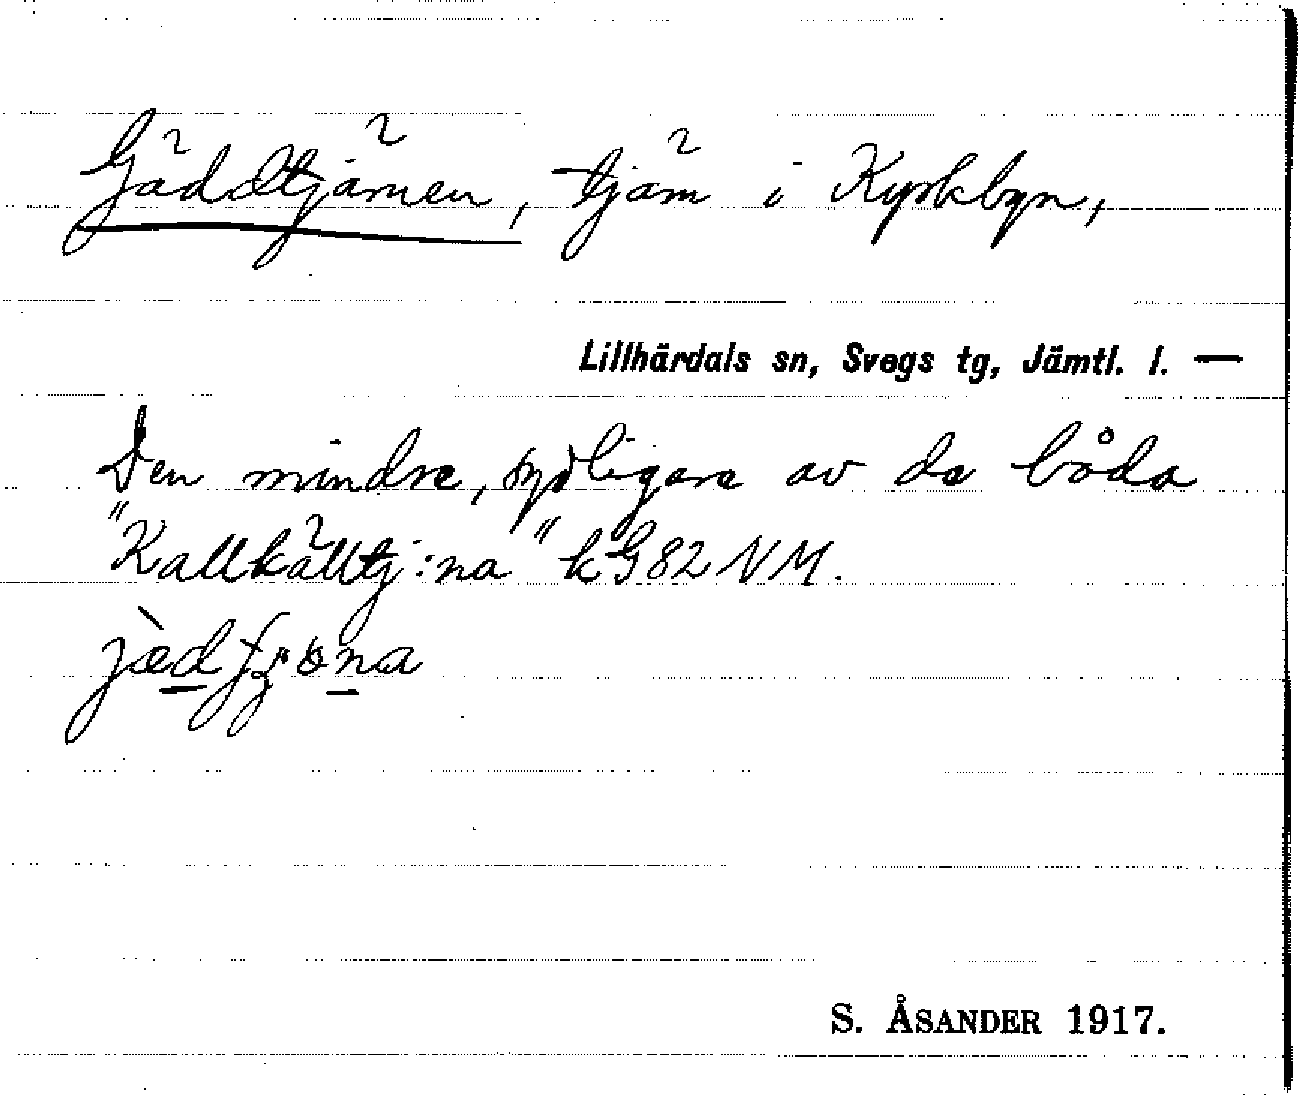 Gäddtjärnen, tjärn i Kyrkbyn,
Lillhärdals sn, Svegs tg, Jämtl. l. —
Den mindre, sydligare av de båda
"Kallkälltj:na" kG82NM.
S. ÅSANDER 1917.